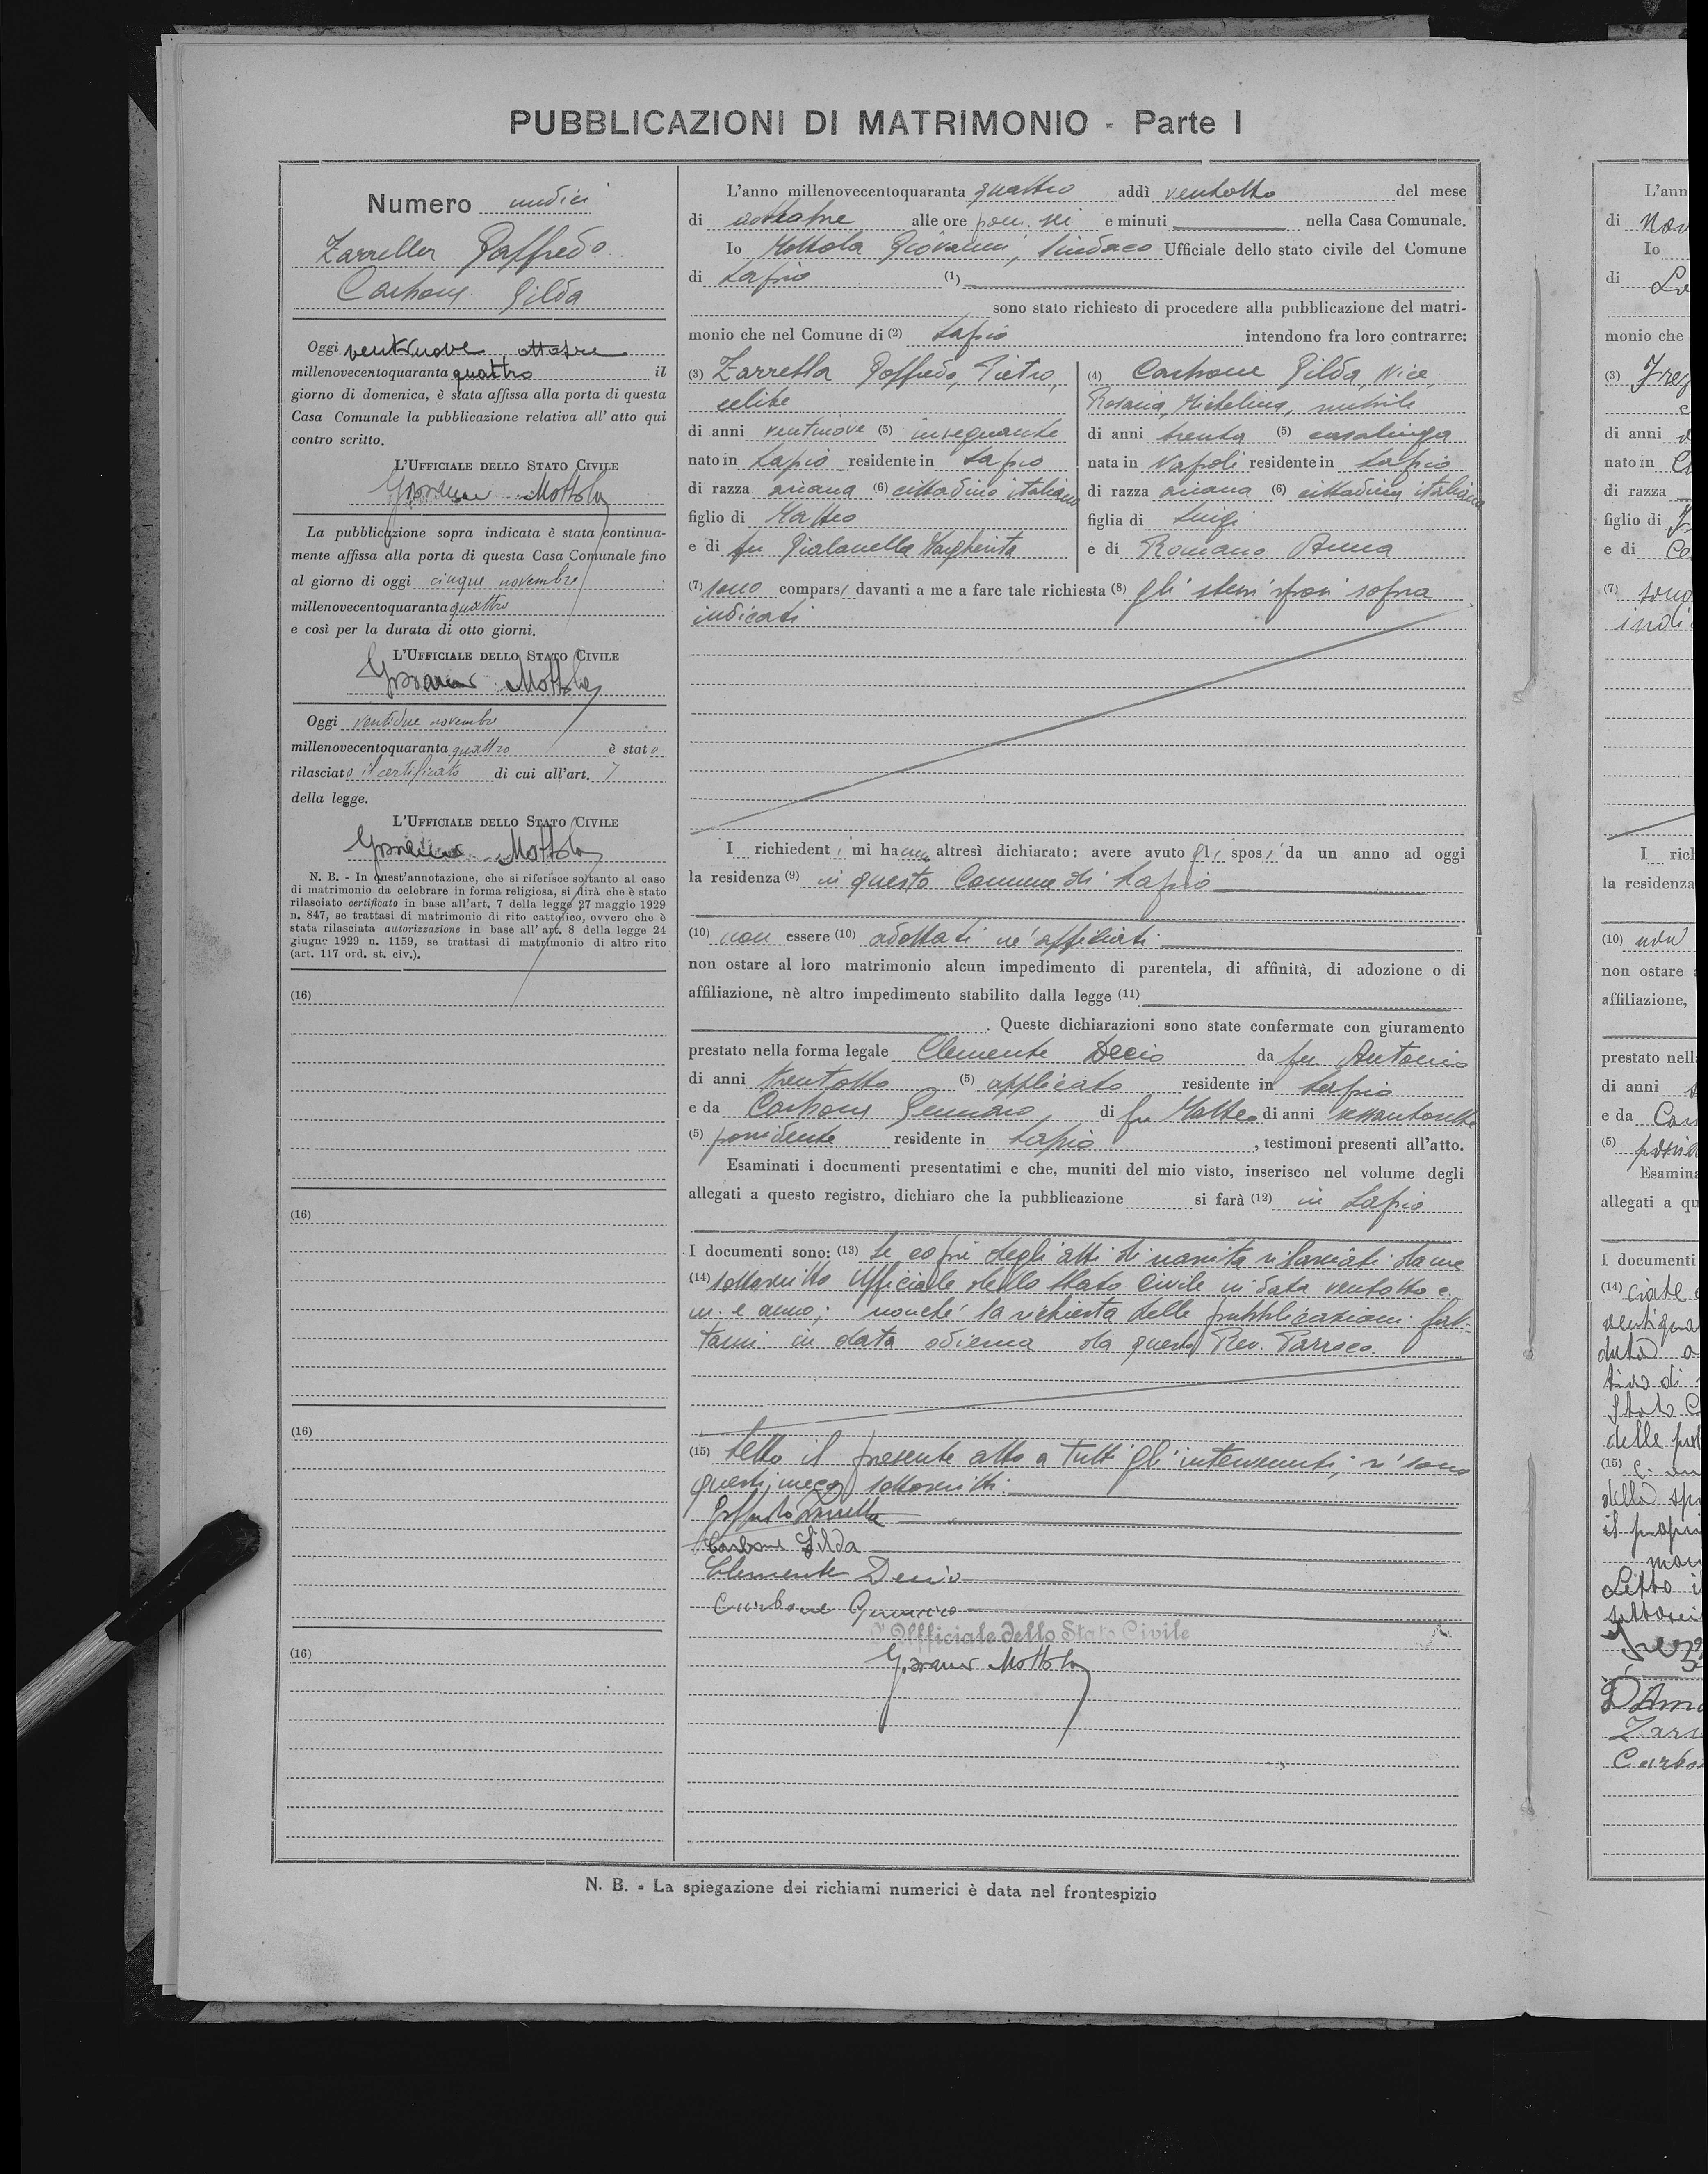 PUBBLICAZIONI DI MATRIMONIO - Parte I
Numero undici
Zarrella Goffredo
Carbone Gilda
Oggi ventinove ottobre
millenovecentoquaranta quattro il
giorno di domenica, è stata affissa alla porta di questa
Casa Comunale la pubblicazione relativa all' atto qui
contro scritto.
L'UFFICIALE DELLO STATO CIVILE
Giovanni Mottola
La pubblicazione sopra indicata è stata continua-
mente affissa alla porta di questa Casa Comunale fino
al giorno di oggi cinque novembre
millenovecentoquaranta quattro
e così per la durata di otto giorni.
L'UFFICIALE DELLO STATO CIVILE
Giovanni Mottola
Oggi ventidue novembre
millenovecentoquaranta quattro è stato
rilasciato il certificato di cui all'art. 7
della legge.
L'UFFICIALE DELLO STATO CIVILE
Giovanni Mottola
N. B. - In quest'annotazione, che si riferisce soltanto al caso
di matrimonio da celebrare in forma religiosa, si dirà che è stato
rilasciato certificato in base all'art. 7 della legge 27 maggio 1929
n. 847, se trattasi di matrimonio di rito cattolico, ovvero che è
stata rilasciata autorizzazione in base all' art. 8 della legge 24
giugno 1929 n. 1159, se trattasi di matrimonio di altro rito
(art. 117 ord. st. civ.).
(16)
(16)
(16)
(16)
L'anno millenovecentoquaranta quattro addì ventotto del mese
di ottobre alle ore pom. sei e minuti nella Casa Comunale.
Io Mottola Giovanni, Sindaco Ufficiale dello stato civile del Comune
di Lapio (1)
sono stato richiesto di procedere alla pubblicazione del matri-
monio che nel Comune di (2) Lapio intendono fra loro contrarre:
(3) Zarrella Goffredo, Pietro,
celibe
di anni ventinove (5) insegnante
nato in Lapio residente in Lapio
di razza ariana (6) cittadino italiano
figlio di Matteo
e di fu Gialanella Margherita
(4) Carbone Gilda, Nice,
Rosaria, Michelina, nubile
di anni trenta (5) casalinga
nata in Napoli residente in Lapio
di razza ariana (6) cittadina italiana
figlia di Luigi
e di Romano Anna
(7) sono comparsi davanti a me a fare tale richiesta (8) gli stessi sposi sopra
indicati
I richiedenti mi hanno altresì dichiarato: avere avuto gli sposi da un anno ad oggi
la residenza (9) in questo Comune di Lapio
(10) non essere (10) adottati nè affiliati
non ostare al loro matrimonio alcun impedimento di parentela, di affinità, di adozione o di
affiliazione, nè altro impedimento stabilito dalla legge (11)
. Queste dichiarazioni sono state confermate con giuramento
prestato nella forma legale Clemente Decio da fu Antonio
di anni trentotto (5) applicato residente in Lapio
e da Carbone Gennaro, di fu Matteo di anni sessantotto
(5) possidente residente in Lapio, testimoni presenti all'atto.
Esaminati i documenti presentatimi e che, muniti del mio visto, inserisco nel volume degli
allegati a questo registro, dichiaro che la pubblicazione si farà (12) in Lapio
I documenti sono: (13) le copie degli atti di nascita rilasciati da me
(14) sottoscritto Ufficiale dello Stato Civile in data ventotto c.
m. e anno; nonchè la richiesta delle pubblicazioni fat-
tami in data odierna da questo Rev. Parroco.
(15) Letto il presente atto a tutti gli intervenuti, si sono
questi meco sottoscritti.
Goffredo Zarrella
Carbone Gilda
Clemente Decio
Carbone Gennaro
L'Ufficiale dello Stato Civile
Giovanni Mottola
N. B. - La spiegazione dei richiami numerici è data nel frontespizio
L'ann
di Nov
Io
di
monio che
(3)
di anni
nato in
di razza
figlio di
e di
(7) sono
indi
I rich
la residenza
(10) non
non ostare
affiliazione,
prestato nell
di anni
e da Car
(5) possid
Esamina
allegati a qu
I documenti
(14)
delle pub
(15)
Letto i